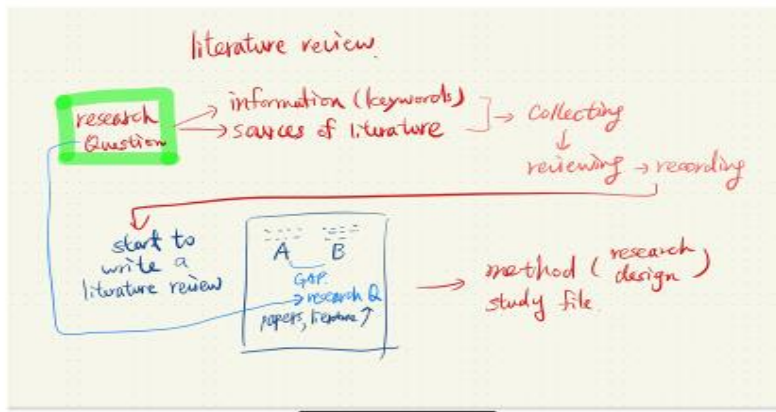 literature review
research
Question
information (keywords)
sources of literature
collecting
reviewing → recording
start to
write a
literature review
A B
GAP.
→ research Q
papers, literature ↑
method (research design)
study file.